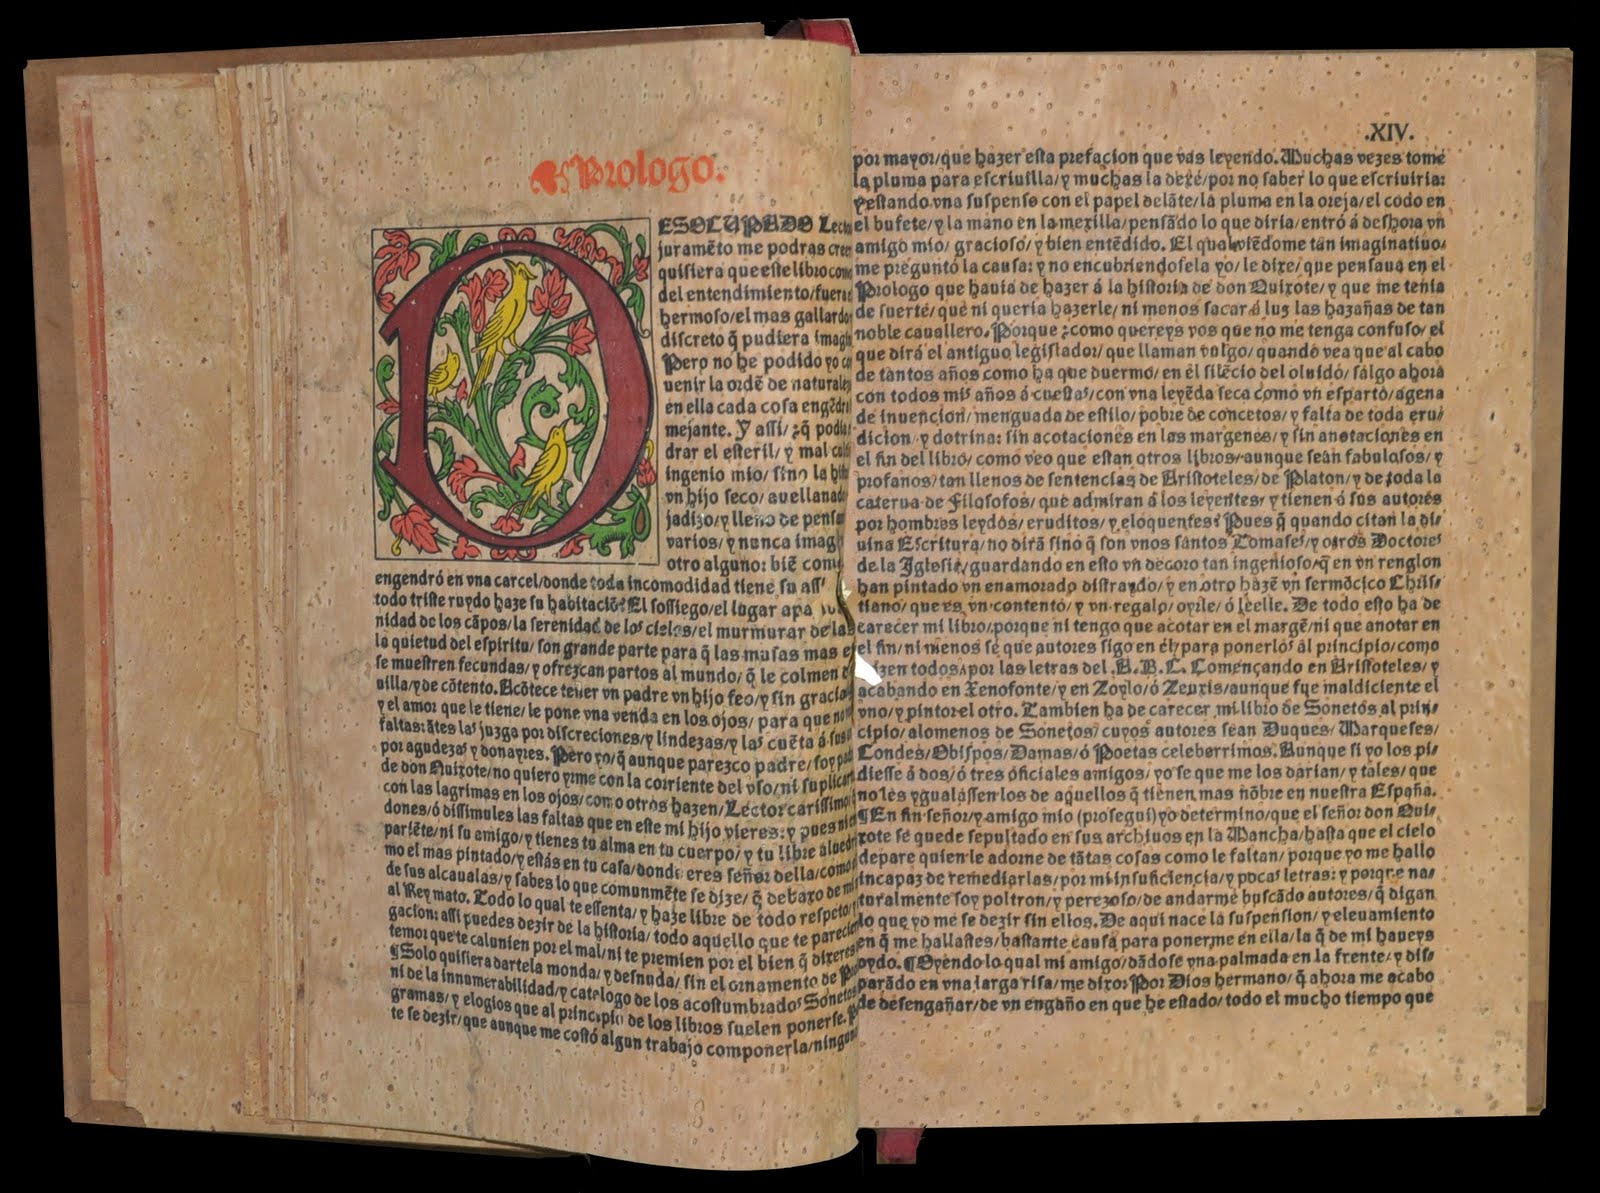 Prologo.
DESOCUPADO Lect
juramẽto me podras cree
quisiera que este libro com
del entendimiento/fuera
hermoso/el mas gallardo
discreto q̃ pudiera imagi
Pero no he podido yo co
uenir la ordẽ de naturale
en ella cada cosa engẽdra
mejante. Y assi/ ¿q̃ podia
drar el esteril/ y mal cul
ingenio mio/ sino la hi
vn hijo seco/ auellanado
jadizo/y lleno de pensa
varios/ y nunca imagi
otro alguno: biẽ como
engendró en vna carcel/donde toda incomodidad tiene su ass
todo triste ruydo haze su habitaciõ? El sossiego/el lugar apa
nidad de los cãpos/la serenidad de los cielos/el murmurar de las
la quietud del espiritu/ son grande parte para q̃ las musas mas e
se muestren fecundas/ y ofrezcan partos al mundo/ q̃ le colmen
uilla/y de cõtento. Acõtece tener vn padre vn hijo feo/y sin gracia
y el amor que le tiene/ le pone vna venda en los ojos/ para que no
faltas: ãtes las juzga por discreciones/y lindezas/y las cuẽta á sus
por agudezas y donayres. Pero yo/q̃ aunque parezco padre/soy pad
de don Quixote/no quiero yrme con la corriente del vso/ni suplicar
con las lagrimas en los ojos/como otros hazen/Lector carissimo
dones/ó dissimules las faltas que en este mi hijo vieres: y pues ni
pariẽte/ni su amigo/y tienes tu alma en tu cuerpo/y tu libre aluedr
mo el mas pintado/y estás en tu casa/donde eres señor della/como
de sus alcaualas/y sabes lo que comunmẽte se dize/ q̃ debaxo de mi
al Rey mato. Todo lo qual te essenta/y haze libre de todo respeto/
gacion: assi puedes dezir de la historia/todo aquello que te parecier
temor que te calunien por el mal/ni te premien por el bien q̃ dixeres
¶Solo quisiera dartela monda/y desnuda/ sin el ornamento de Pro
ni de la innumerabilidad/y catalogo de los acostumbrados Sonetos
gramas/y elogios que al principio de los libros suelen ponerse.
te se dezir/que aunque me costó algun trabajo componerla/ninguno
.XIV.
por mayor/que hazer esta prefacion que vas leyendo. Muchas vezes tomé
la pluma para escriuilla/y muchas la dexé/por no saber lo que escriuiria:
y estando vna suspenso con el papel delãte/la pluma en la oreja/el codo en
el bufete/y la mano en la mexilla/pensãdo lo que diria/entró á deshora vn
amigo mio/ gracioso/ y bien entẽdido. El qual viẽdome tan imaginatiuo/
me preguntó la causa: y no encubriendosela yo/ le dixe/ que pensaua en el
Prologo que hauia de hazer á la historia de don Quixote/ y que me tenia
de suerte/ que ni queria hazerle/ ni menos sacar á luz las hazañas de tan
noble cauallero. Porque ¿como quereys vos que no me tenga confuso/ el
que dirá el antiguo legislador/ que llaman vulgo/ quando vea que al cabo
de tantos años como ha que duermo/ en el silẽcio del oluido/ salgo ahora
con todos mis años á cuestas/ con vna leyẽda seca como vn esparto/ agena
de inuencion/ menguada de estilo/ pobre de concetos/ y falta de toda eru/
dicion/ y dotrina: sin acotaciones en las margenes/ y sin anotaciones en
el fin del libro/ como veo que estan otros libros/ aunque sean fabulosos/ y
profanos/ tan llenos de sentencias de Aristoteles/ de Platon/ y de toda la
caterua de Filosofos/ que admiran á los leyentes/ y tienen á sus autores
por hombres leydos/ eruditos/ y eloquentes? Pues q̃ quando citan la di/
uina Escritura/ no dirã sino q̃ son vnos santos Tomases/ y otros Doctores
de la Iglesia/ guardando en esto vn decoro tan ingenioso/ q̃ en vn renglon
han pintado vn enamorado distraydo/ y en otro hazẽ vn sermõcico Chris/
tiano/ que es vn contento/ y vn regalo/ oyrle/ ó leelle. De todo esto ha de
carecer mi libro/ porque ni tengo que acotar en el margẽ/ ni que anotar en
el fin/ ni menos se que autores sigo en él/ para ponerlos al principio/ como
hazen todos/ por las letras del A.B.C. Començando en Aristoteles/ y
acabando en Xenofonte/ y en Zoylo/ ó Zeuxis/ aunque fue maldiciente el
vno/ y pintor el otro. Tambien ha de carecer mi libro de Sonetos al prin/
cipio/ alomenos de Sonetos/ cuyos autores sean Duques/ Marqueses/
Condes/ Obispos/ Damas/ ó Poetas celeberrimos. Aunque si yo los pi/
diesse á dos/ ó tres oficiales amigos/ yo se que me los darian/ y tales/ que
no les ygualassen los de aquellos q̃ tienen mas nõbre en nuestra España.
¶En fin señor/ y amigo mio (prosegui) yo determino/ que el señor don Qui/
xote se quede sepultado en sus archiuos en la Mancha/ hasta que el cielo
depare quien le adorne de tãtas cosas como le faltan/ porque yo me hallo
incapaz de remediarlas/ por mi insuficiencia/ y pocas letras: y porque na/
turalmente soy poltron/ y perezoso/ de andarme buscãdo autores/ q̃ digan
lo que yo me se dezir sin ellos. De aqui nace la suspension/ y eleuamiento
en q̃ me hallastes/ bastante causa para ponerme en ella/ la q̃ de mi haueys
oydo. ¶Oyendo lo qual mi amigo/ dãdose vna palmada en la frente/ y dis/
parãdo en vna larga risa/ me dixo: Por Dios hermano/ q̃ ahora me acabo
de desengañar/ de vn engaño en que he estado/ todo el mucho tiempo que